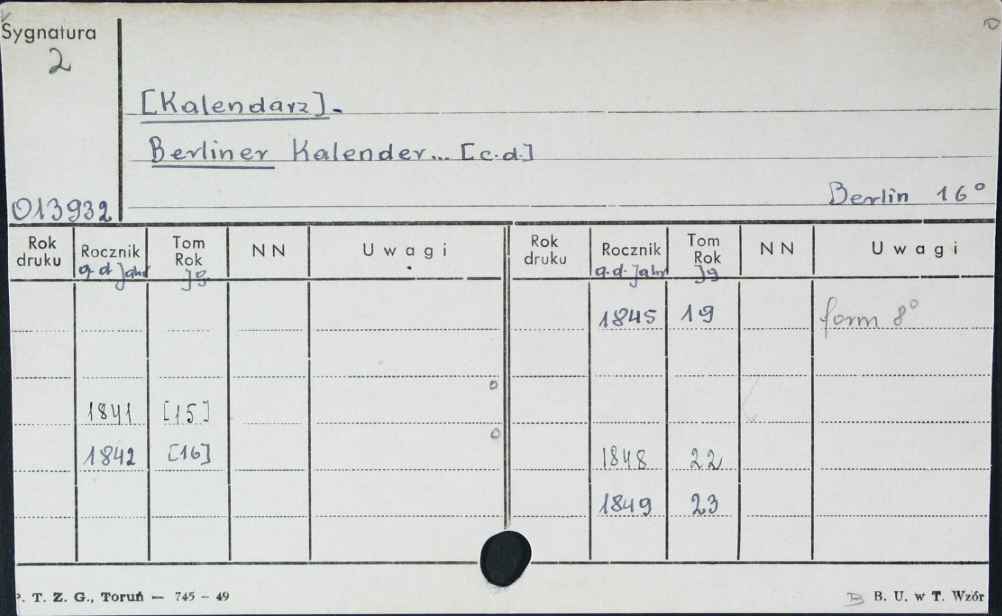 Sygnatura
2
[Kalendarz].
Berliner Kalender... [c.d.]
Berlin 16°
013932
Rok druku Rocznik Tom Rok NN Uwagi Rok druku Rocznik Tom Rok NN Uwagi
Jg g.d. Jg
1845 19 form 8°
1841 [15]
1842 [16] 1848 22
1849 23
P. T. Z. G., Toruń — 745 - 49 B. U. w T. Wzór